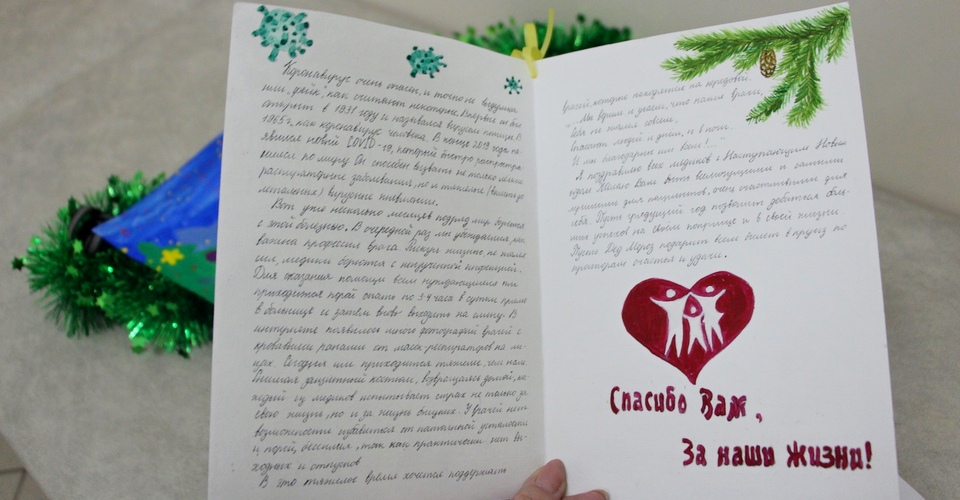 Коронавирус очень опасен, и точно не выдумка
или „фейк", как считают некоторые. Впервые он был
открыт в 1931 году и назывался вирусом птицы. В
1965 г. как коронавирус человека. В конце 2019 года по-
явился новый COVID-19, который быстро распростра-
нился по миру. Он способен вызвать не только легкие
респираторные заболевания, но и тяжелые (вплоть до
летальных) вирусные пневмонии.
Вот уже несколько месяцев подряд мир борется
с этой болезнью. В очередной раз мы убеждаемся, как
важна профессия врача. Рискуя жизнью, не жалея
сил, медики борются с неизученной инфекцией.
Для оказания помощи всем нуждающимся им
приходится порой спать по 3-4 часа в сутки прямо
в больнице и затем вновь выходить на смену. В
интернете появилось много фотографий врачей с
кровавыми ранами от масок-респираторов на ли-
цах. Сегодня им приходится тяжелее, чем нам.
Снимая защитный костюм, возвращаясь домой, ка-
ждый из медиков испытывает страх не только за
свою жизнь, но и за жизнь ближних. У врачей нет
возможности избавиться от накопленной усталости
и порой, бессилия, так как практически нет вы-
ходных и отпусков.
В это тяжелое время хочется поддержать
врачей, которые находятся на передовой.
"...Мы верим и знаем, что наши врачи,
Себя не жалея совсем,
Спасают людей и днем, и в ночи.
И мы благодарны им всем!..."
Я поздравляю всех медиков с Наступающим Новым
годом. Желаю Вам быть великодушными и самыми
лучшими для пациентов, очень счастливыми для
себя. Пусть грядущий год позволит добиться боль-
ших успехов на своем поприще и в своей жизни.
Пусть Дед Мороз подарит всем билет в круиз по
просторам счастья и удачи.
Спасибо Вам,
За наши жизни!